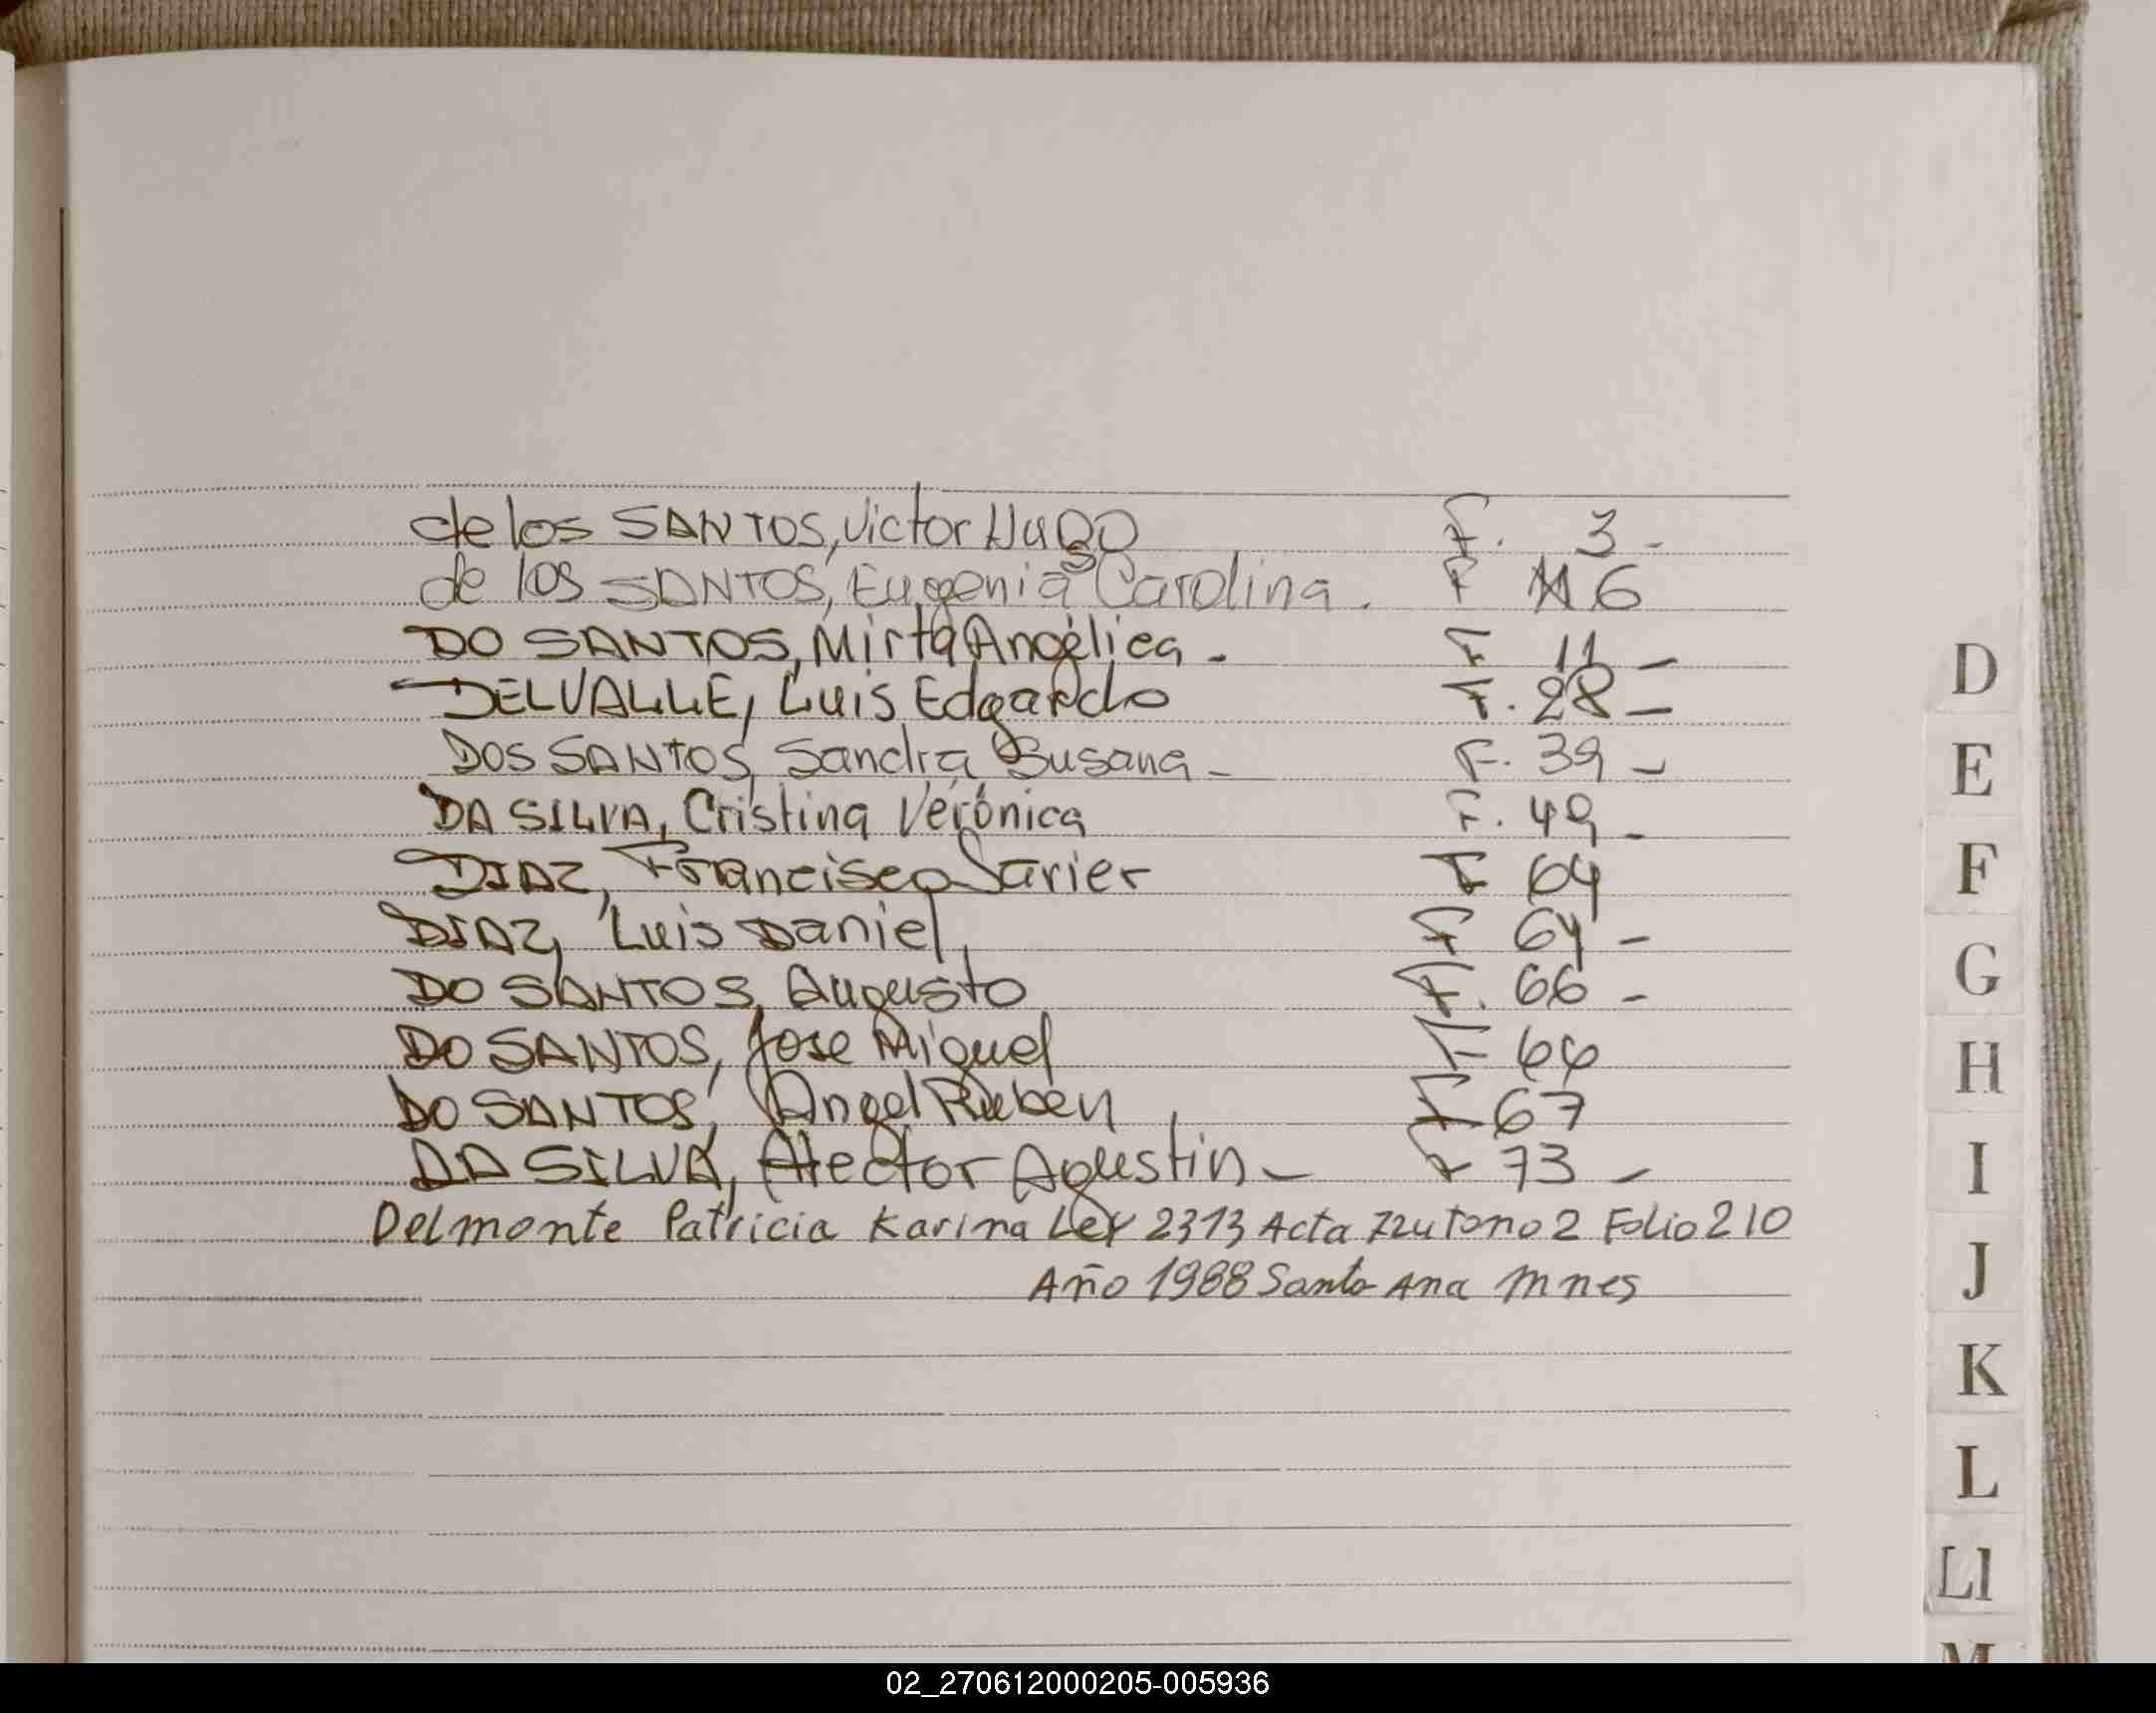 de los SANTOS, Victor HuGO F. 3 -
de los SANTOS, Eugenia Carolina. F 6
DO SANTOS, Mirta Angélica - F 11 -
DELVALLE, Luis Edgardo F. 28 -
DOS SANTOS, Sandra Susana - F. 39 -
DA SILVA, Cristina Verónica F. 49 -
DIAZ, Francisco Javier F 64
DIAZ, Luis Daniel, F 64 -
DO SANTOS, Augusto F. 66 -
DO SANTOS, Jose Miguel F 66
DO SANTOS, Angel Ruben F 67
DA SILVA, Hector Agustin - F 73 -
Delmonte Patricia Karina Ley 2313 Acta Tomo 2 Folio 210
Año 1988 Santa Ana Mnes
D
E
F
G
H
I
J
K
L
Ll
M
02_270612000205-005936